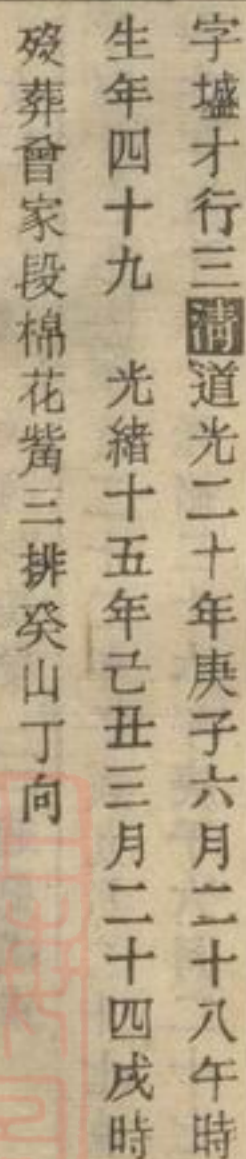 字壚才行三清道光二十年庚子六月二十八午時
生年四十九 光緒十五年己丑三月二十四戌時
歿葬曾家段棉花觜三排癸山丁向